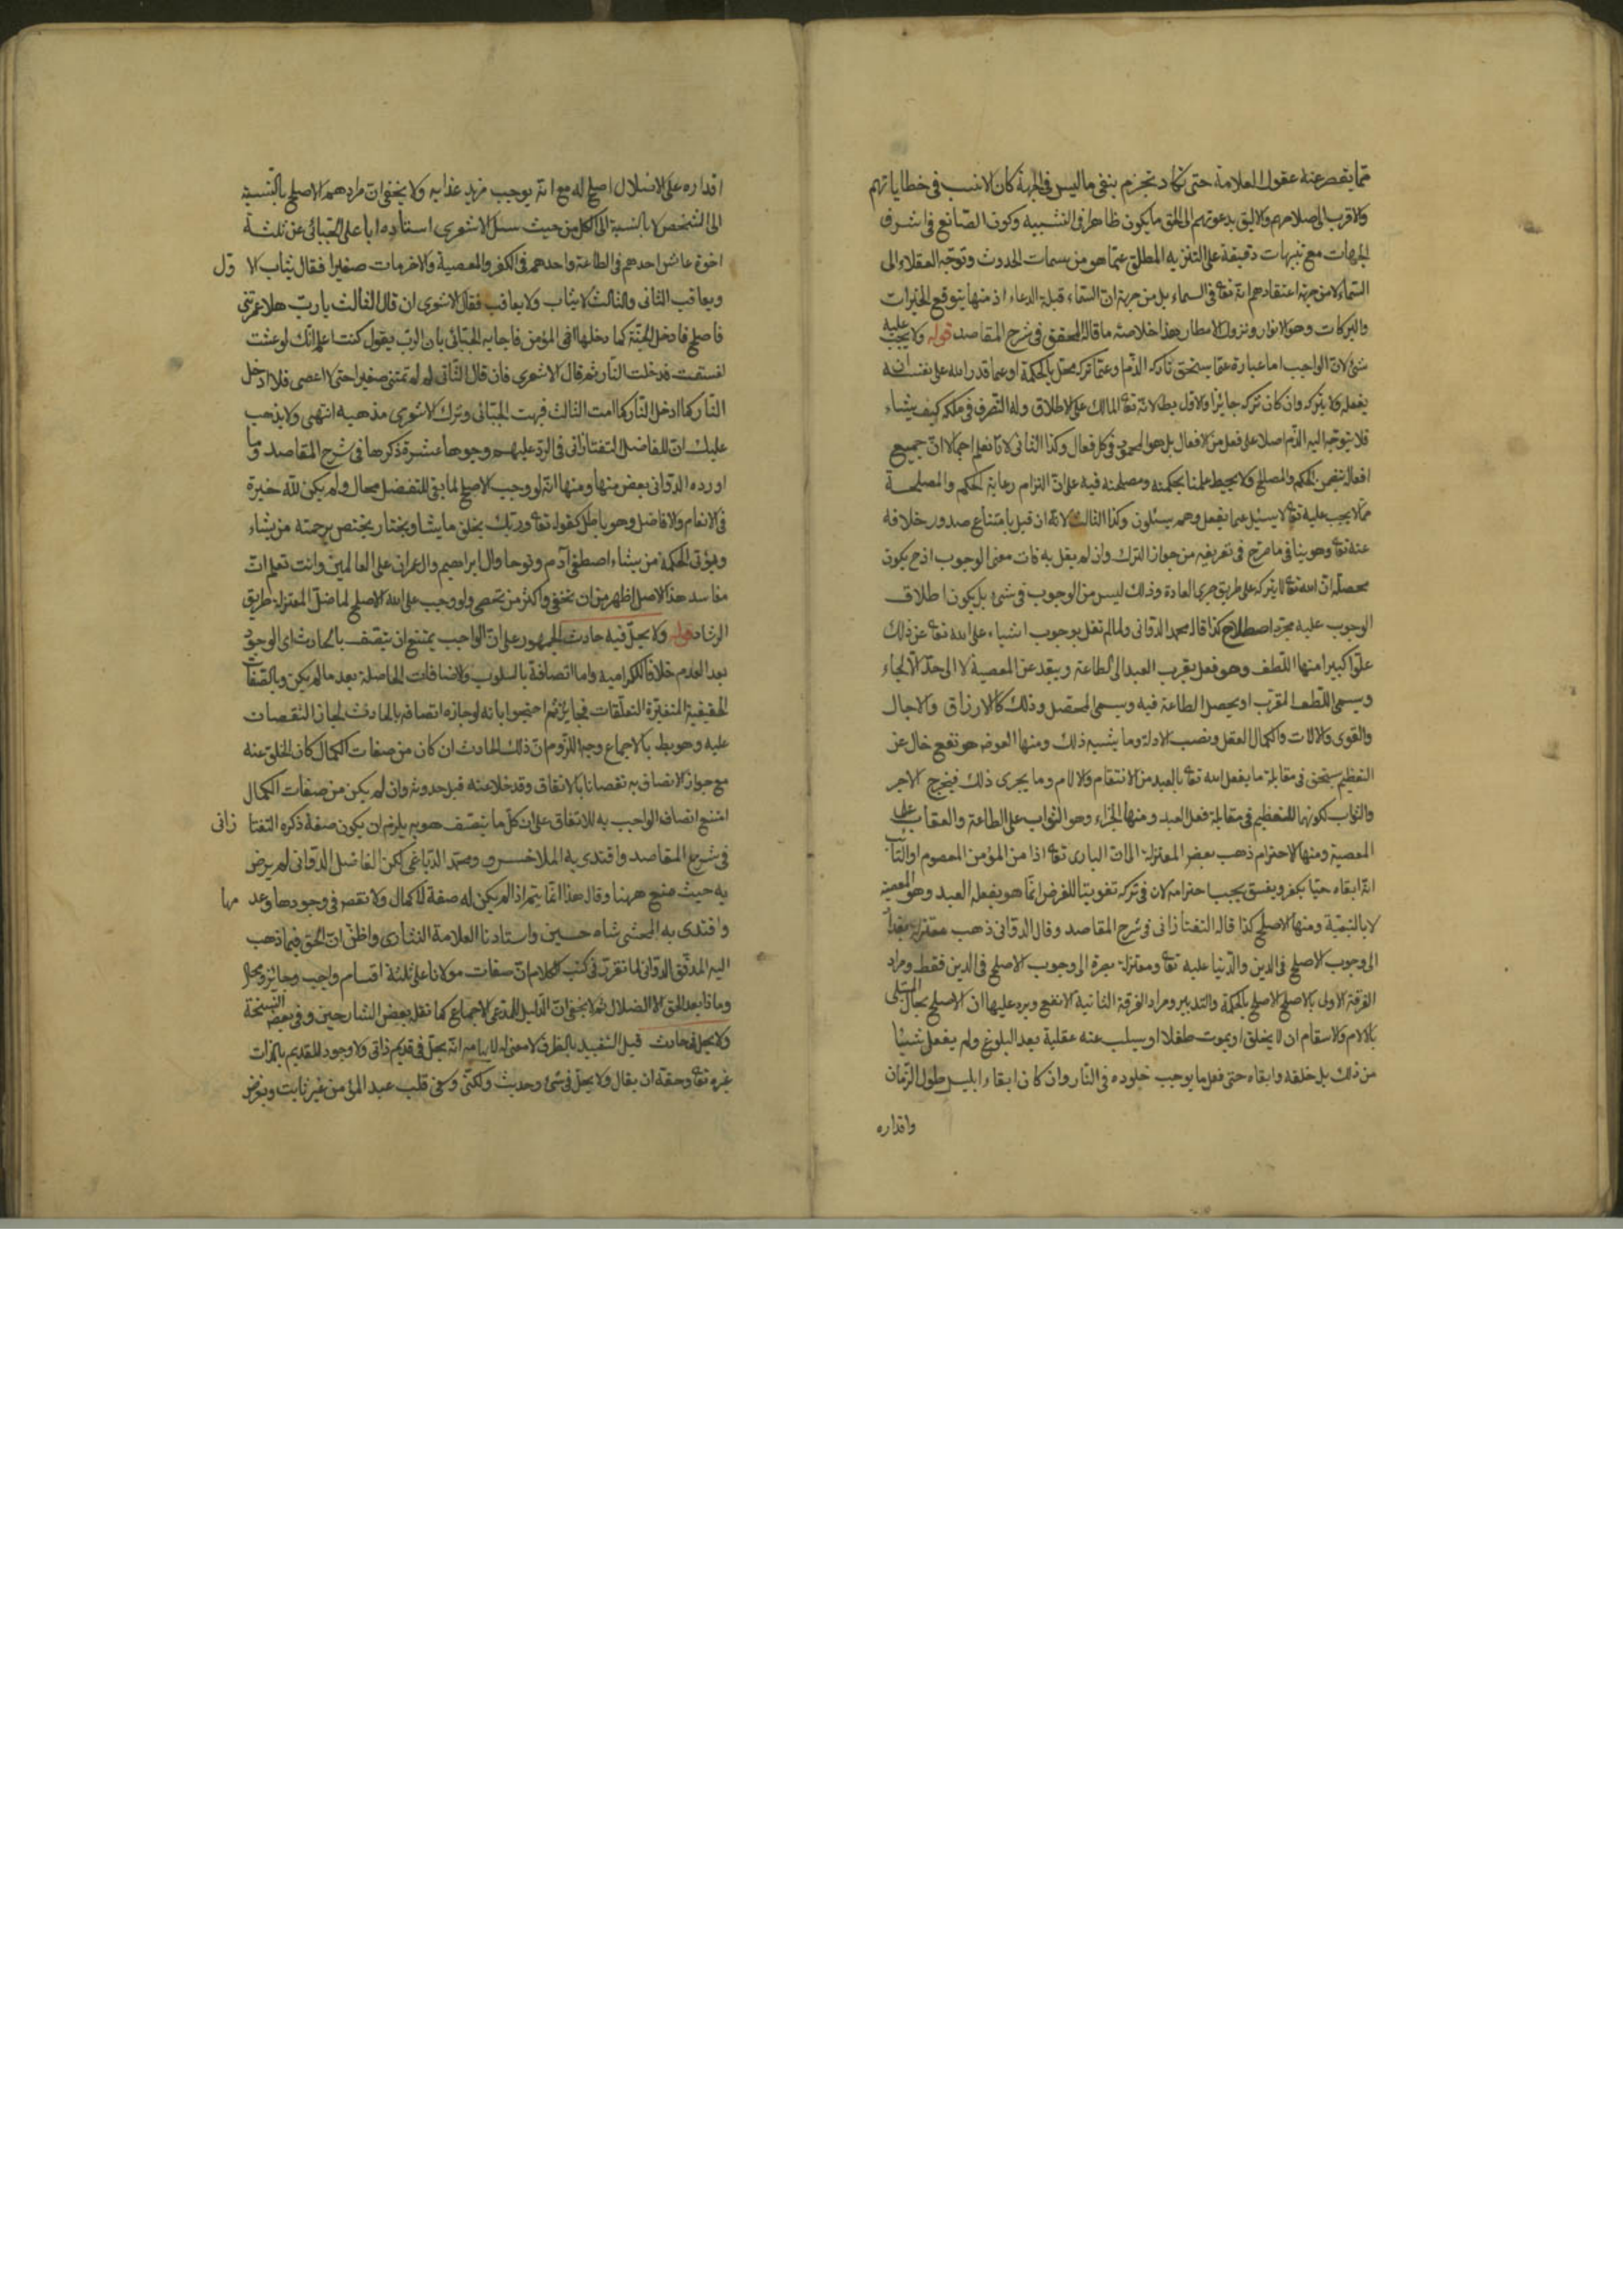 مما يقصر عنه عقول العلامة حتى تكاد تجزم بنفى ما ليس فى الجهة كان الانسب فى خطاباتهم
والاقرب الى صلاحهم والاليق بدعوتهم الى الحق ما يكون ظاهرا فى التشبيه وكون الصانع فى اشرف
الجهات مع تنبيهات دقيقة على التنزيه المطلق عما هو من سمات الحدوث وتوجّه العقلاء الى
السماء لا من جهة اعتقادهم انه تعا فى السماء بل من جهة ان السماء قبلة الدعاء اذ منها يتوقع الخيرات
والبركات وهو الانوار ونزول الامطار هذا خلاصة ما قاله المحقق فى شرح المقاصد قوله ولا يجب عليه
شئ لان الواجب اما عبارة عما يستحق تاركه الذم او عما تركه مخل بالحكمة او عما قدر الله على نفسه ان
يفعله ولا يتركه وان كان تركه جايزا والاول بط لانه تعا المالك على الاطلاق وله التصرف فى ملكه كيف يشاء
فلا يتوجه اليه الذم اصلا على فعل من الافعال بل هو المحمود فى كل فعال وكذا الثانى لانا نعلم اجمالا ان جميع
افعاله تتضمن الحكم والمصالح ولا يحيط علمنا بحكمته ومصلحته فيه على ان التزام رعاية الحكم والمصلحة
مما لا يجب عليه تعا لا يسئل عما يفعل وهم يسئلون وكذا الثالث لانه ان قيل بامتناع صدور خلافه
عنه تعا وهو ينافى ما صرح فى تعريفه من جواز الترك وان لم يقل به فات معنى الوجوب اذ ح يكون
محصله ان الله تعا لا يتركه على طريق جرى العادة وذلك ليس من الوجوب فى شئ بل يكون اطلاق
الوجوب عليه مجرد اصطلاح كذا قاله محمد الدوانى ولما لم نقل بوجوب اشياء على الله تعا عن ذلك
علوّا كبيرا منها اللطف وهو فعل يقرب العبد الى الطاعة ويبعد عن المعصية لا الى حدّ الالجاء
ويسمى اللطف المقرّب او يحصل الطاعة فيه ويسمى المحصّل وذلك كالارزاق والاجال
والقوى والالات واكمال العقل ونصب الادلة وما يشبه ذلك ومنها العوض هو نفع خال عن
التعظيم يستحق فى مقابلة ما يفعل الله تعا بالعبد من الانتقام والالام وما يجرى ذلك فيخرج الاجر
والثواب لكونهما للتعظيم فى مقابلة فعل العبد ومنها الجزاء وهو الثواب على الطاعة والعقاب على
المعصية ومنها الاحترام ذهب بعض المعتزلة الى ان البارى تعا اذا من المؤمن المعصوم او التائب
انه ابقاه حيّا يكفر ويفسق يجب احترامه لان فى تركه تفويتا للغرض انما هو يفعله العبد وهو المعصية
لا بالتبقية ومنها الاصلح كذا قاله التفتازانى فى شرح المقاصد وقال الدوانى ذهب معتزلة بغداد
الى وجوب الاصلح فى الدين والدنيا عليه تعا ومعتزلة بصرة الى وجوب الاصلح فى الدين فقط ومراد
الفرقة الاولى بالاصلح الاصلح بالحكمة والتدبير ومراد الفرقة الثانية الانفع ويرد عليها ان الاصلح بحال المبتلى
بالالام والاسقام ان لا يخلق او يموت طفلا او يسلب عنه عقلية بعد البلوغ ولم يفعل شيئا
من ذلك بل خلقه وابقاه حتى فعل ما يوجب خلوده فى النار وان كان ابقاء ابليس طول الزمان
واقداره
اقداره على الاضلال اصلح له مع انه يوجب مزيد عذابه ولا يخفى ان مرادهم الاصلح بالنسبة
الى الشخص لا بالنسبة الى الكل من حيث سئل الاشعرى استاده ابا على الجبائى عن ثلثة
اخوة عاش احدهم فى الطاعة واحدهم فى الكفر والمعصية والاخر مات صغيرا فقال يثاب الاول
ويعاقب الثانى والثالث لا يثاب ولا يعاقب فقال الاشعرى ان قال الثالث يا ربّ هلا عمرتنى
فاصلح فادخل الجنة كما دخلها اخى المؤمن فاجابه الجبائى بان الرب يقول كنت اعلم انك لو عشت
لفسقت فدخلت النار ثم قال الاشعرى فان قال الثانى لم لم تمتنى صغيرا حتى لا اعصى فلا ادخل
النار كما ادخل النار كما امت الثالث فبهت الجبائى وترك الاشعرى مذهبه انتهى ولا يذهب
عليك ان للفاضل التفتازانى فى الرد عليهم وجوها عشرة ذكرها فى شرح المقاصد وما
اورده الدوانى بعض منها ومنها انه لو وجب الاصلح لما بقى للتفضل مجال ولم يكن لله خيرة
فى الانعام والافاضل وهو باطل كقوله تعا وربك يخلق ما يشا ويختار يختص برحمته من يشاء
ويؤتى الحكمة من يشاء اصطفى آدم ونوحا وال ابراهيم وال عمران على العالمين وانت تعلم ان
مفاسد هذا الاصل اظهر من ان تخفى واكثر من تحصى ولو وجب على الله الاصلح لما ضل المعتزلة طريق
الرشاد قوله ولا يحلّ فيه حادث الجمهور على ان الواجب يمتنع ان يتصف بالحادث اى الوجود
بعد العدم خلافا للكرامية واما اتصافه بالسلوب والاضافات الحاصلة بعد ما لم يكن وبالصفات
الحقيقية المتغيرة التعلقات فجايز ثم احتجوا بانه لو جاز اتصافه بالحادث لجاز النقصات
عليه وهو بط بالاجماع وجه اللزوم ان ذلك الحادث ان كان من صفات الكمال كان الخلو عنه
مع جواز الاتصاف به نقصانا بالاتفاق وقد خلا عنه قبل حدوثه وان لم يكن من صفات الكمال
امتنع اتصاف الواجب به للاتفاق على ان كل ما يتصف هو به يلزم ان يكون صفة ذكره التفتازانى
فى شرح المقاصد واقتدى به الملا خسرو ومحمد الدباغى لكن الفاضل الدوانى لم يرض
به حيث منع ههنا وقال هذا انما يتم اذا لم يكن له صفة لا كمال ولا نقص فى وجودها وعدمها
واقتدى به المحشى شاه حسين واستادنا العلامة النثارى واظن ان الحق فيما ذهب
اليه المدقق الدوانى لما تقرر فى كتب الكلام ان صفات مولانا على ثلثة اقسام واجب وجايز ومحال
وماذا بعد الحق الا الضلال ثم لا يخفى ان الدليل المدعى الاجماع كما نقله بعض الشارحين وفى بعض النسخة
ولا يحل فى حادث قيل التقييد بالظرف لا معنى له لايهامه انه يحل فى قديم ذاتى ولا وجود للقديم بالذات
غيره تعا وحقه ان يقال ولا يحلّ فى شئ وحديث ولكنى وسعى قلب عبد المؤمن غير ثابت وبفرض